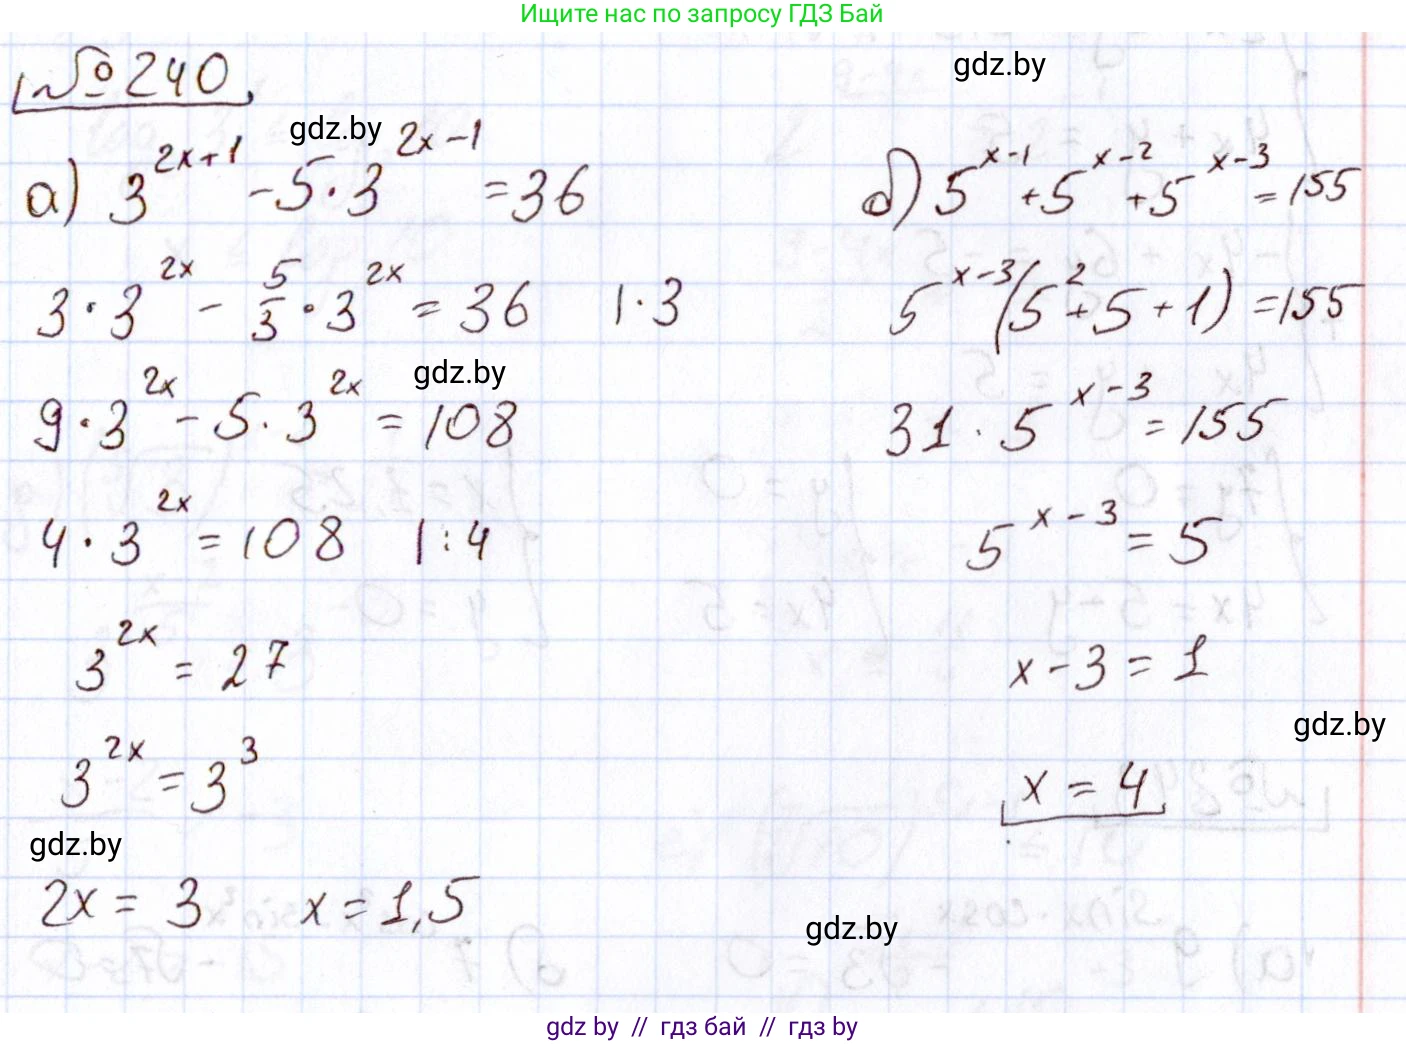 Ищите нас по запросу ГДЗ Бай
№ 240
gdz.by
gdz.by
а) 3^{2x+1} - 5·3^{2x-1} = 36
3·3^{2x} - 5/3·3^{2x} = 36 |·3
gdz.by
9·3^{2x} - 5·3^{2x} = 108
4·3^{2x} = 108 |:4
3^{2x} = 27
3^{2x} = 3^3
gdz.by
2x = 3 x = 1,5
б) 5^{x-1} + 5^{x-2} + 5^{x-3} = 155
5^{x-3}(5^2 + 5 + 1) = 155
31·5^{x-3} = 155
5^{x-3} = 5
x - 3 = 1
gdz.by
x = 4
gdz.by
gdz by // гдз бай // гдз by